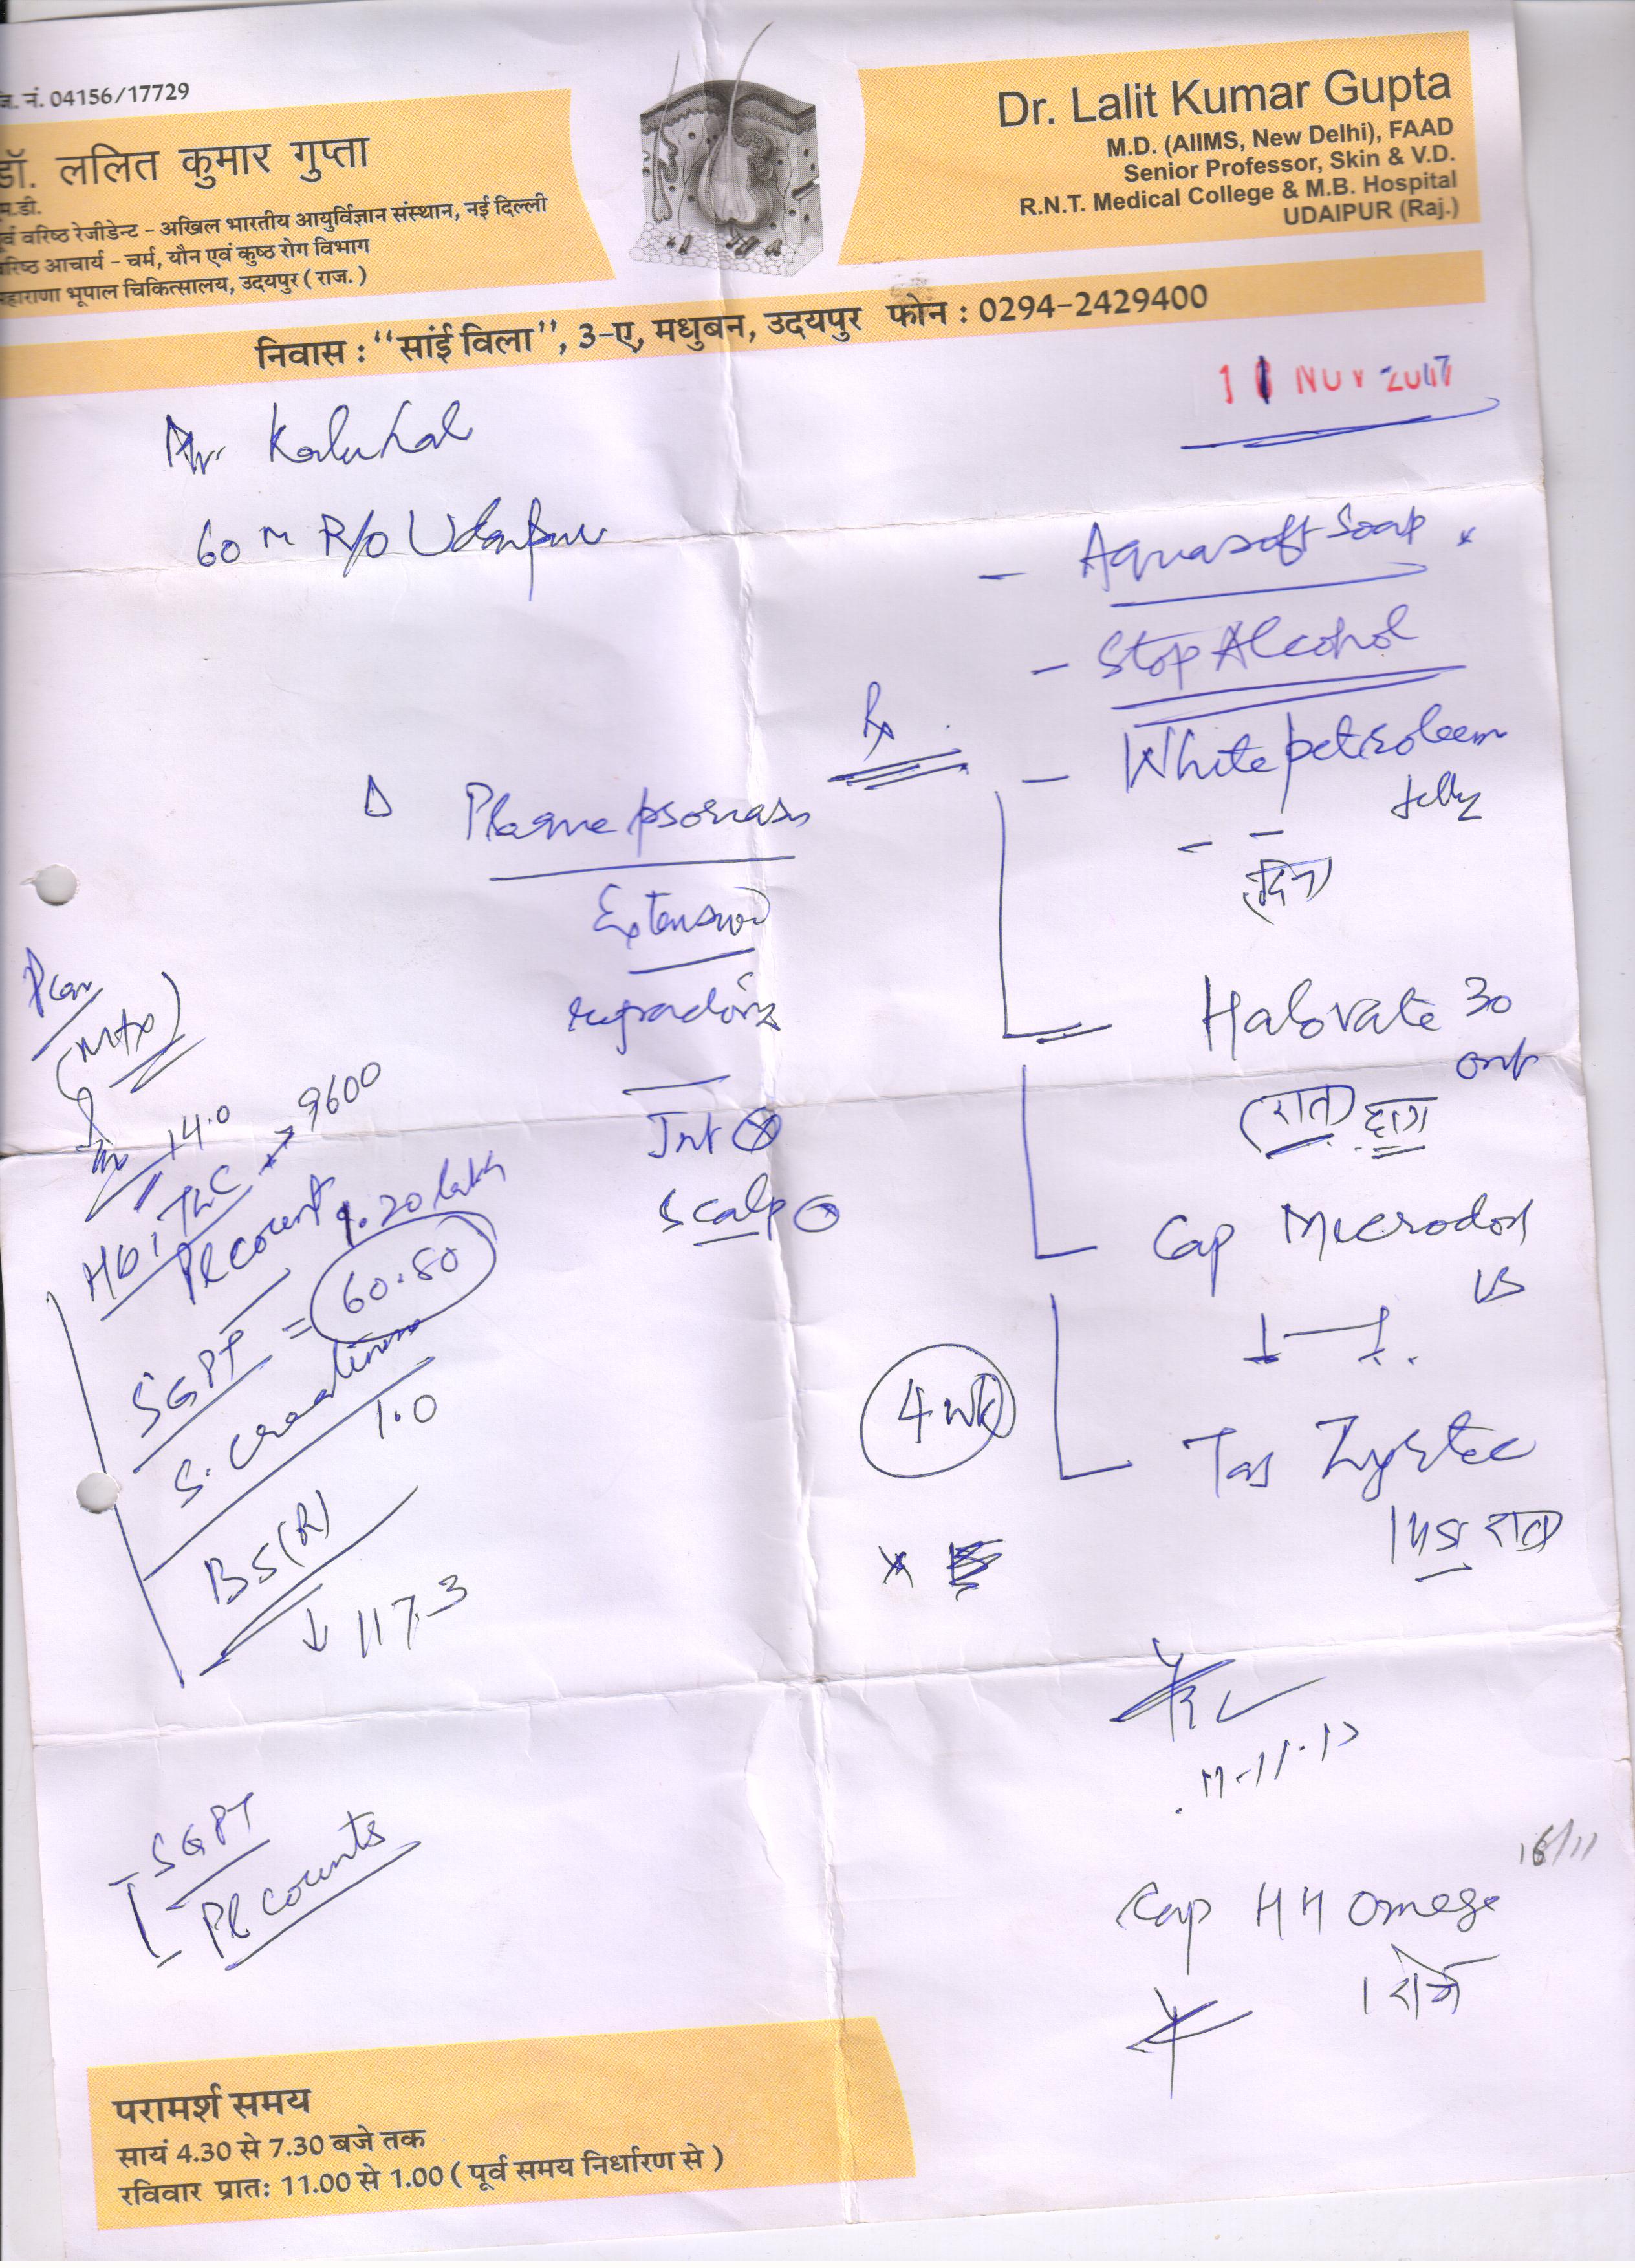 जि. नं. 04156/17729
डॉ. ललित कुमार गुप्ता
एम.डी.
पूर्व वरिष्ठ रेजीडेन्ट - अखिल भारतीय आयुर्विज्ञान संस्थान, नई दिल्ली
वरिष्ठ आचार्य - चर्म, यौन एवं कुष्ठ रोग विभाग
महाराणा भूपाल चिकित्सालय, उदयपुर ( राज. )
Dr. Lalit Kumar Gupta
M.D. (AIIMS, New Delhi), FAAD
Senior Professor, Skin & V.D.
R.N.T. Medical College & M.B. Hospital
UDAIPUR (Raj.)
निवास : "सांई विला", 3-ए, मधुबन, उदयपुर फोन : 0294-2429400
NOV 2017
Mr Kalulal
60 M R/o Udaipur
- Aquasoft Soap
- Stop Alcohol
Rx
- White petroleum
Jelly
(दिन)
Δ Plaque psoriasis
Extensive
Scalp
Halovate 30
oint
(रात)
Cap Microdox
1-1
Tab Zyrtec
रात
4 wk
Plan
(MTX)
Hb: 14.0
TLC → 9600
Pl count 1.20 lakh
SGPT = 60.80
S. creatinine
1.0
BS(R)
↓ 117.3
SGPT
Pl counts
16/11
Cap HH Omega
1 रोज
परामर्श समय
सायं 4.30 से 7.30 बजे तक
रविवार प्रातः 11.00 से 1.00 ( पूर्व समय निर्धारण से )